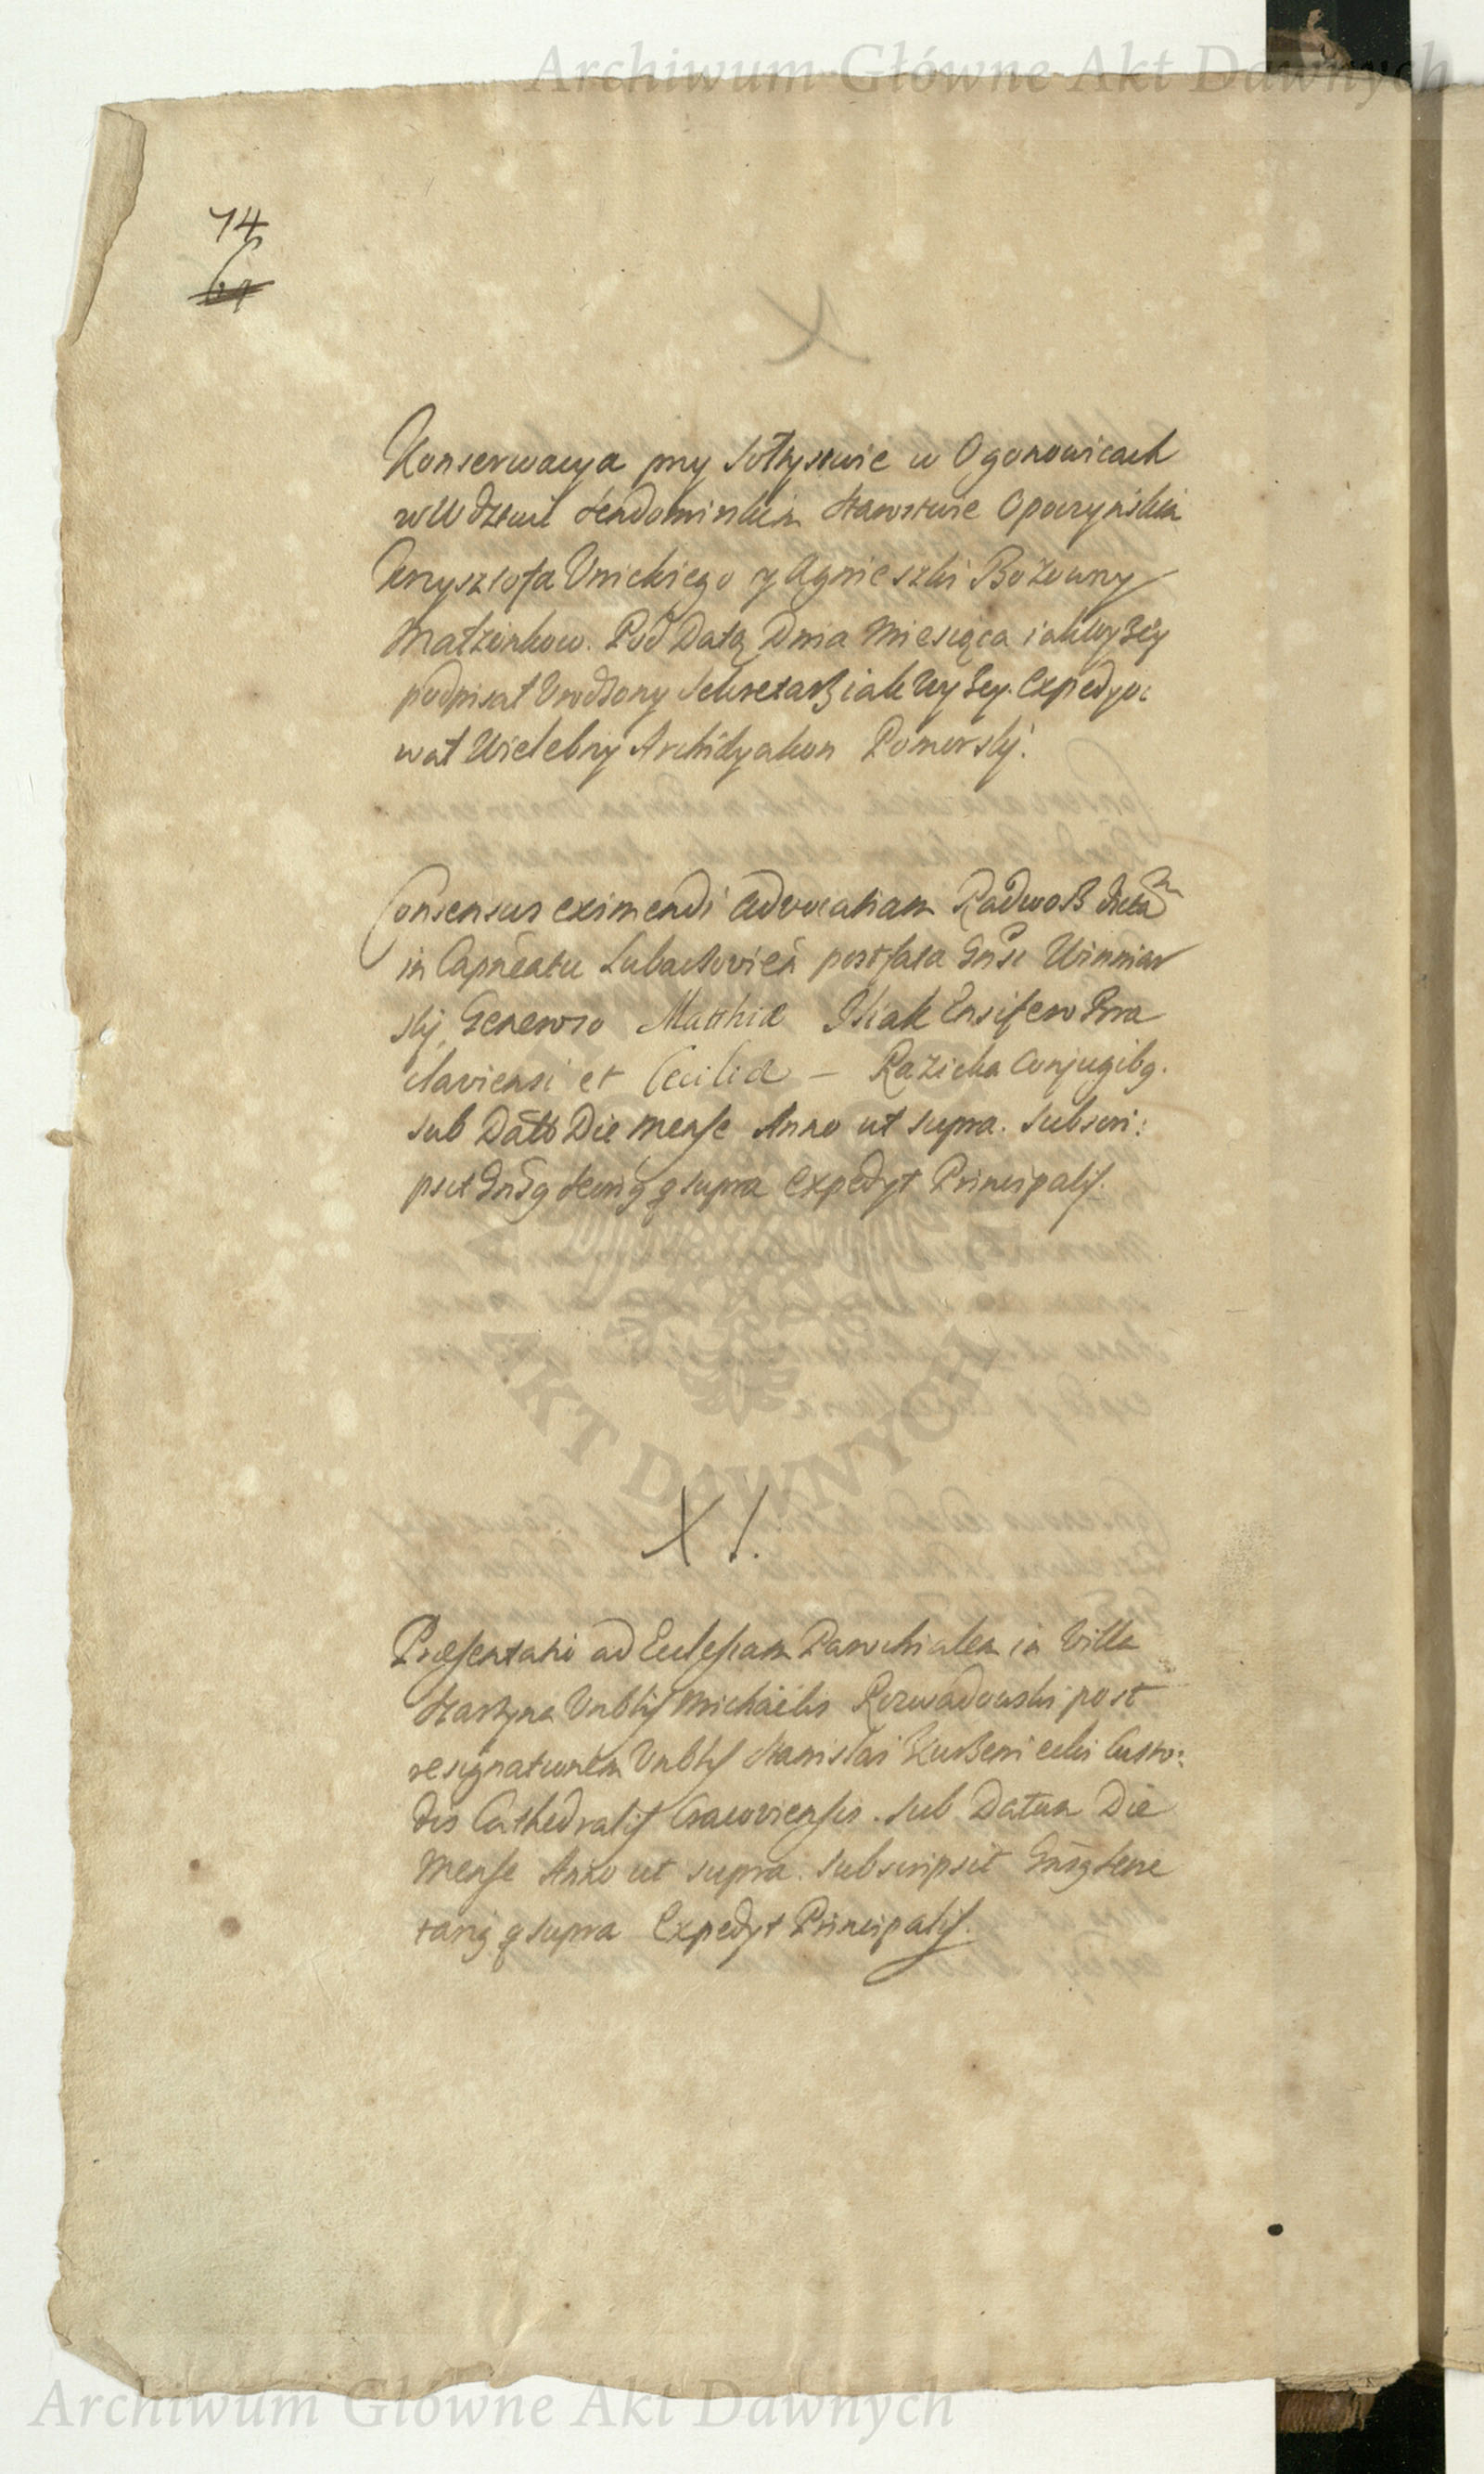 Archiwum Główne Akt Dawnych
74
69
X
Konserwacya przy Sołtystwie w Ogonowicach
w Wdztwie Sendomirskim Starostwie Opoczynskim
Krysztofa Unickiego y Agnieszki Bożowny
Małżonkow. Pod Datą Dnia Miesiąca iak wyżey
podpisał Urodzony Sekretarz iak wyżey. Expedyo:
wał Wielebny Archidyakon Pomorskj.
Consensus eximendi Advocatiam Radwoß dictam
in Capneatu Lubaczovien post fata Gnsi Winniar
skj, Generoso Matthiæ Ensifero Bra
claviensi et Ceciliæ – Conjugibq.
sub Datto Die Mense Anno ut supra. Subscri:
psit Gnsq Secrig q supra Expedyt Principalis.
AKT DAWNYCH
XI.
Præsentatio ad Ecclesiam Parochialem in Villa
Vnblis Michaëlis Rozwadowski post
resignationem Vnblis Stanislai Custo:
dis Cathedralis Cracoviensis. Sub Datum Die
Mense Anno ut supra. Subscripsit Gnsq Secre
tariq q supra Expedyt Principalis.
Archiwum Główne Akt Dawnych